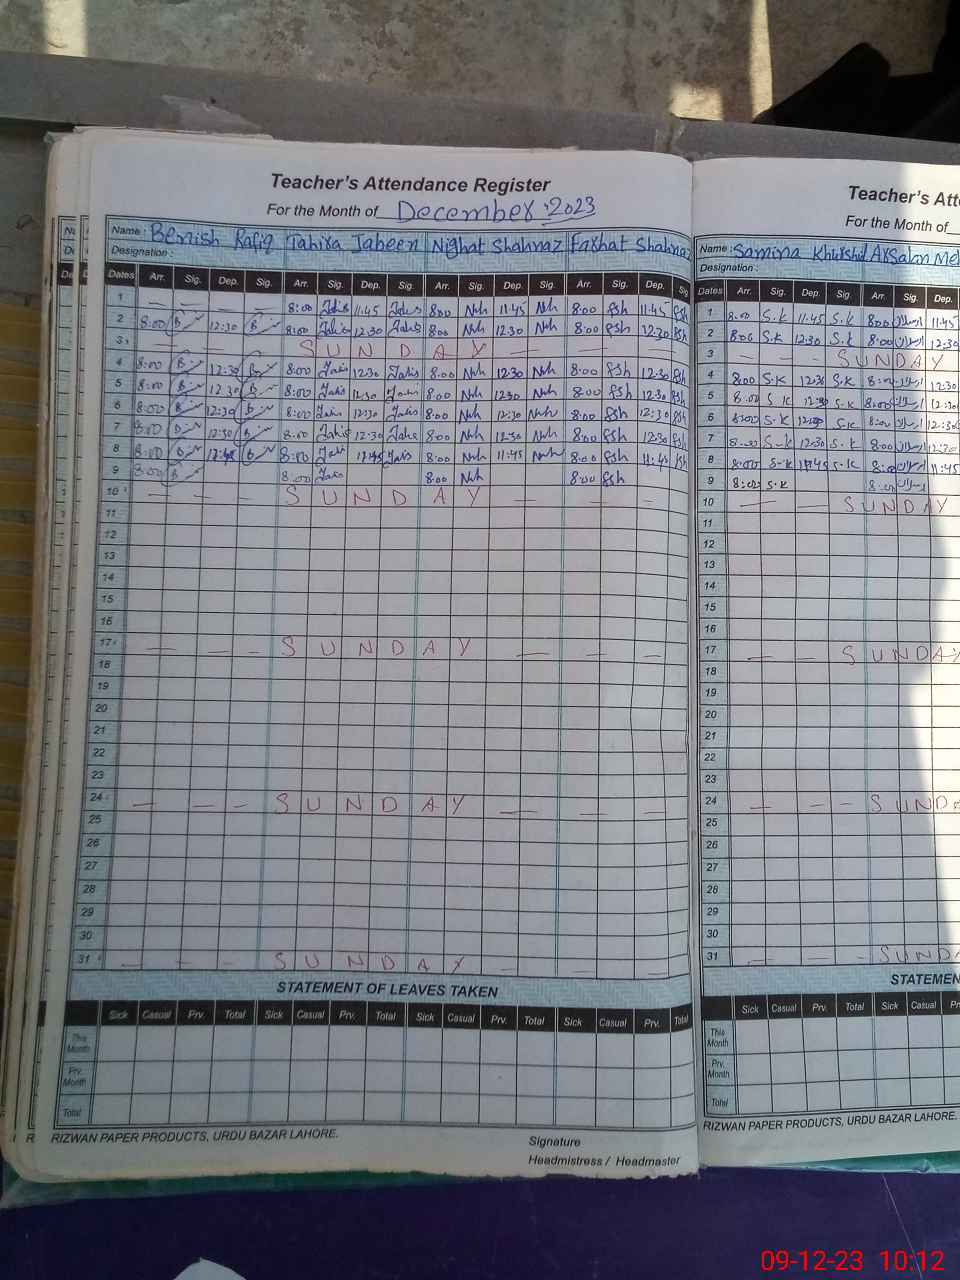 Teacher's Attendance Register
For the Month of December 2023
Name: Benish Rafiq Tahira Jabeen Nighat Shahnaz Farhat Shahnaz
Designation:
Dates Arr. Sig. Dep. Sig. Arr. Sig. Dep. Sig. Arr. Sig. Dep. Sig. Arr. Sig. Dep. Sig
1 — — — — 8:00 11:45 8:00 Nsh 11:45 Nsh 8:00 fsh 11:45 fsh
2 8:00 B 12:30 B 8:00 12:30 8:00 Nsh 12:30 Nsh 8:00 fsh 12:30 fsh
3 — — SUNDAY — — —
4 8:00 B 12:30 B 8:00 12:30 8:00 Nsh 12:30 Nsh 8:00 fsh 12:30 fsh
5 8:00 B 12:30 B 8:00 12:30 8:00 Nsh 12:30 Nsh 8:00 fsh 12:30 fsh
6 8:00 B 12:30 B 8:00 12:30 8:00 Nsh 12:30 Nsh 8:00 fsh 12:30 fsh
7 8:00 B 12:30 B 8:00 12:30 8:00 Nsh 12:30 Nsh 8:00 fsh 12:30 fsh
8 8:00 B B 8:00 11:45 8:00 Nsh 11:45 Nsh 8:00 fsh 11:45 fsh
9 8:00 B 8:00 8:00 Nsh 8:00 fsh
10 — — — SUNDAY — — —
11
12
13
14
15
16
17 — — — SUNDAY — — —
18
19
20
21
22
23
24 — — — SUNDAY — — —
25
26
27
28
29
30
31 — — — SUNDAY — — —
STATEMENT OF LEAVES TAKEN
Sick Casual Prv. Total Sick Casual Prv. Total Sick Casual Prv. Total Sick Casual Prv. Total
This Month
Prv. Month
Total
RIZWAN PAPER PRODUCTS, URDU BAZAR LAHORE.
Signature
Headmistress / Headmaster
Teacher's Atte
For the Month of
Name: Samina Khurshid Arsalan Me
Designation:
Dates Arr. Sig. Dep. Sig. Arr. Sig. Dep.
1 8:00 S.K 11:45 S.K 8:00 ارسلان 11:45
2 8:00 S.K 12:30 S.K 8:00 ارسلان 12:30
3 — — — SUNDAY
4 8:00 S.K 12:30 S.K 8:00 ارسلان 12:30
5 8:00 S.K 12:30 S.K 8:00 ارسلان 12:30
6 8:00 S.K 12:30 S.K 8:00 ارسلان 12:30
7 8:00 S.K 12:30 S.K 8:00 ارسلان 12:30
8 8:00 S.K 11:45 S.K 8:00 ارسلان 11:45
9 8:00 S.K 8:00 ارسلان
10 — — SUNDAY
11
12
13
14
15
16
17 — — SUNDAY
18
19
20
21
22
23
24 — — - SUNDA
25
26
27
28
29
30
31 — — - SUNDA
STATEMEN
Sick Casual Prv. Total Sick Casual Pr
This Month
Prv. Month
Total
RIZWAN PAPER PRODUCTS, URDU BAZAR LAHORE.
09-12-23 10:12